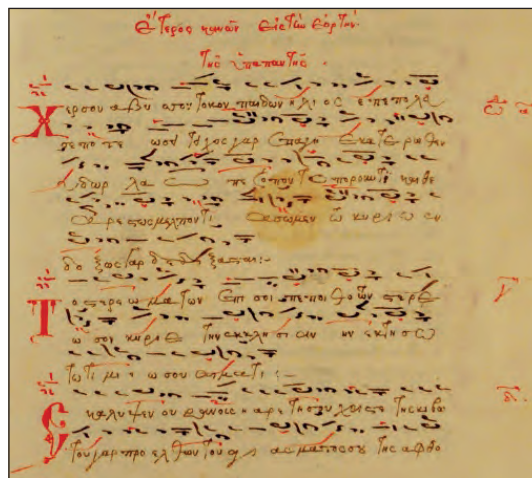 Ἕτερος κανὼν εἰς τὴν ἑορτὴν
τῆς ὑπαπαντῆς .
Χερσον αβυσσοτοκον παιδον ηλιος επεπολε
σε ποτε ωσει τειχος γαρ επαγη εκατερωθεν
υδωρ λαω πεζοποντοπορουντι και θε
αρεστως μελποντι ασωμεν τω κυριω εν
δοξως γαρ δεδοξασται :-
Το στερεωμα των επι σοι πεποιθοτων στερε
ωσον κυριε την εκκλησιαν ην εκτησω
τω τιμιω σου αιματι :-
Εκαλυψεν ουρανους η αρετη σου χριστε της κιβω
του γαρ προελθων του αγιασματος σου της αφθο